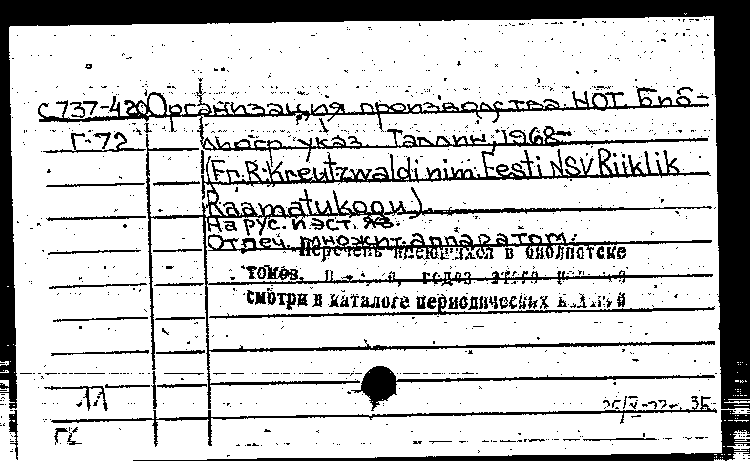 С737-420 Организация производства. НОТ. Биб-
Г-72 лиогр. указ. Таллин, 1968-
(Fr. R. Kreutzwaldi nim. Eesti NSV Riiklik
Raamatukogu).
На рус. и эст. яз.
Отпеч. множит. аппаратом.
Перечень имеющихся в библиотеке
томов, годов этого
смотри в каталоге периодических изданий
11
ГК